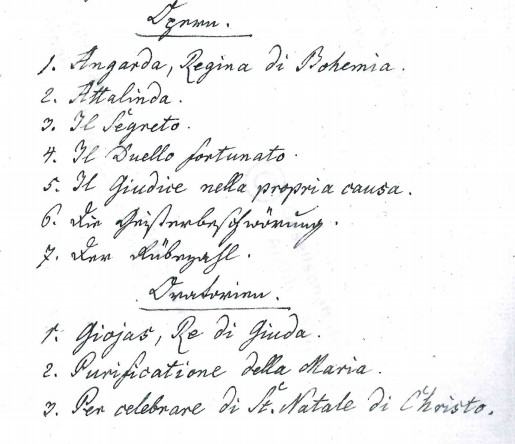 Opern.
1. Angarda, Regina di Bohemia.
2. Attalinda.
3. Il Segreto.
4. Il Duello fortunato.
5. Il Giudice nella propria causa.
6. Die Geisterbeschwörung.
7. Der Rübezahl.
Oratorien.
1. Giojas, Re di Giuda.
2. Purificatione della Maria.
3. Per celebrare di St. Natale di Christo.